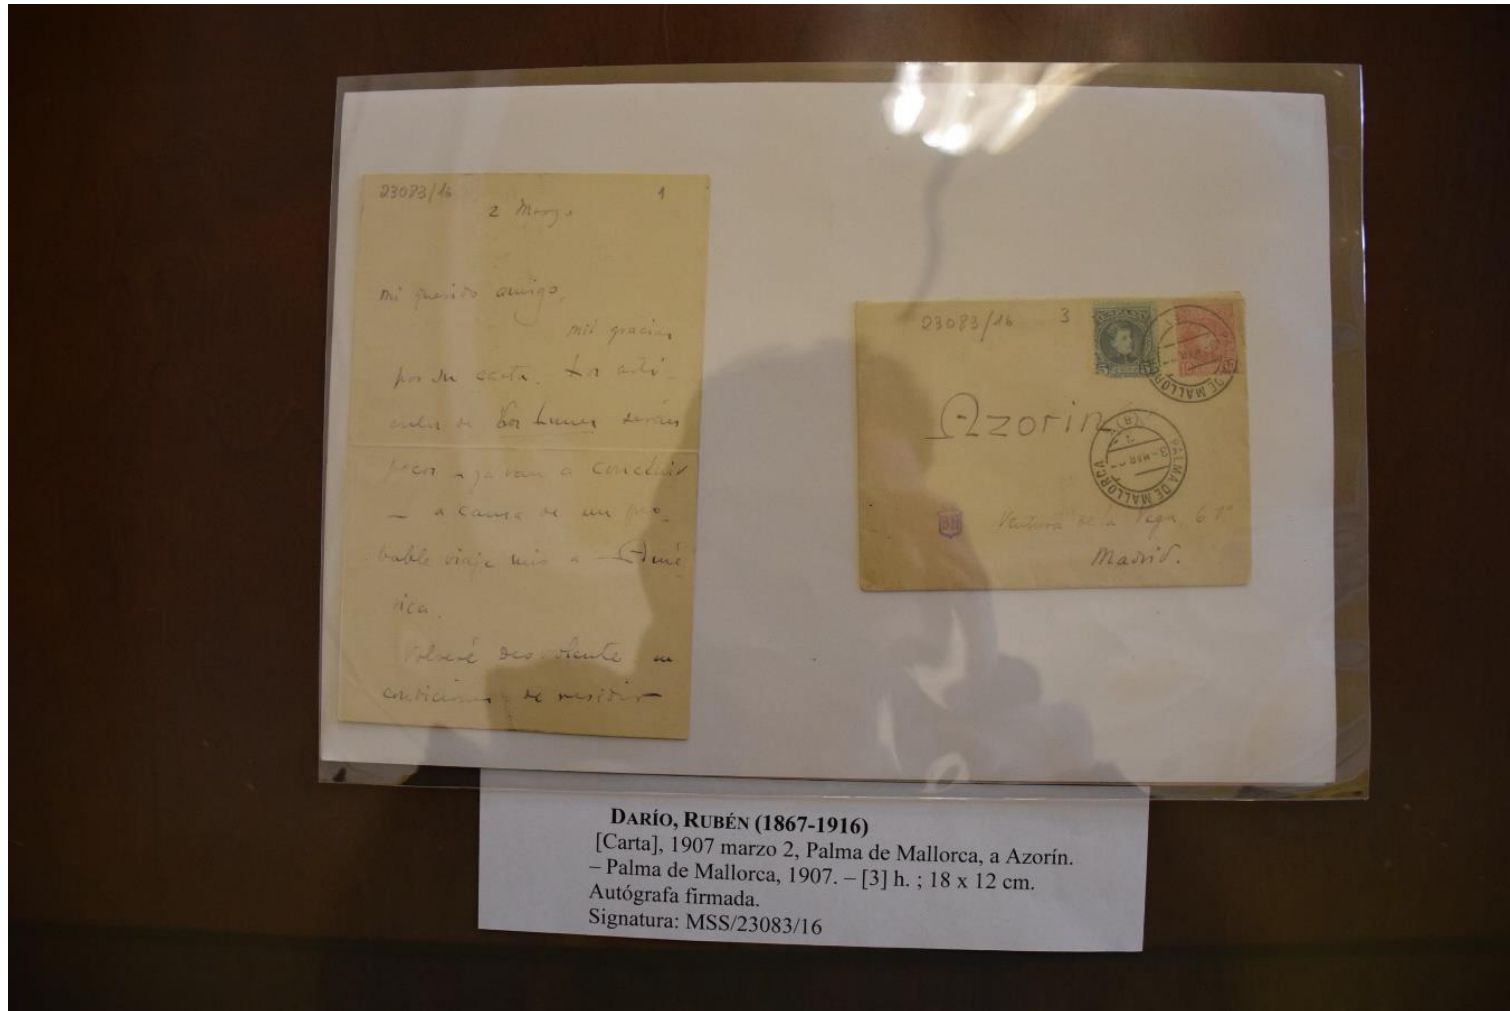 23083/16 1
2 Marzo
Mi querido amigo,
mil gracias
por su carta. Los artí-
culos de Los Lunes serán
pocos – ya van a concluir
– a causa de un pro-
bable viaje mío a Amé
rica.
Volveré Deo volente en
condiciones de residir
23083/16 3
Azorín
PALMA DE MALLORCA
Ventura de la Vega, 6
Madrid.
DARÍO, RUBÉN (1867-1916)
[Carta], 1907 marzo 2, Palma de Mallorca, a Azorín.
– Palma de Mallorca, 1907. – [3] h. ; 18 x 12 cm.
Autógrafa firmada.
Signatura: MSS/23083/16